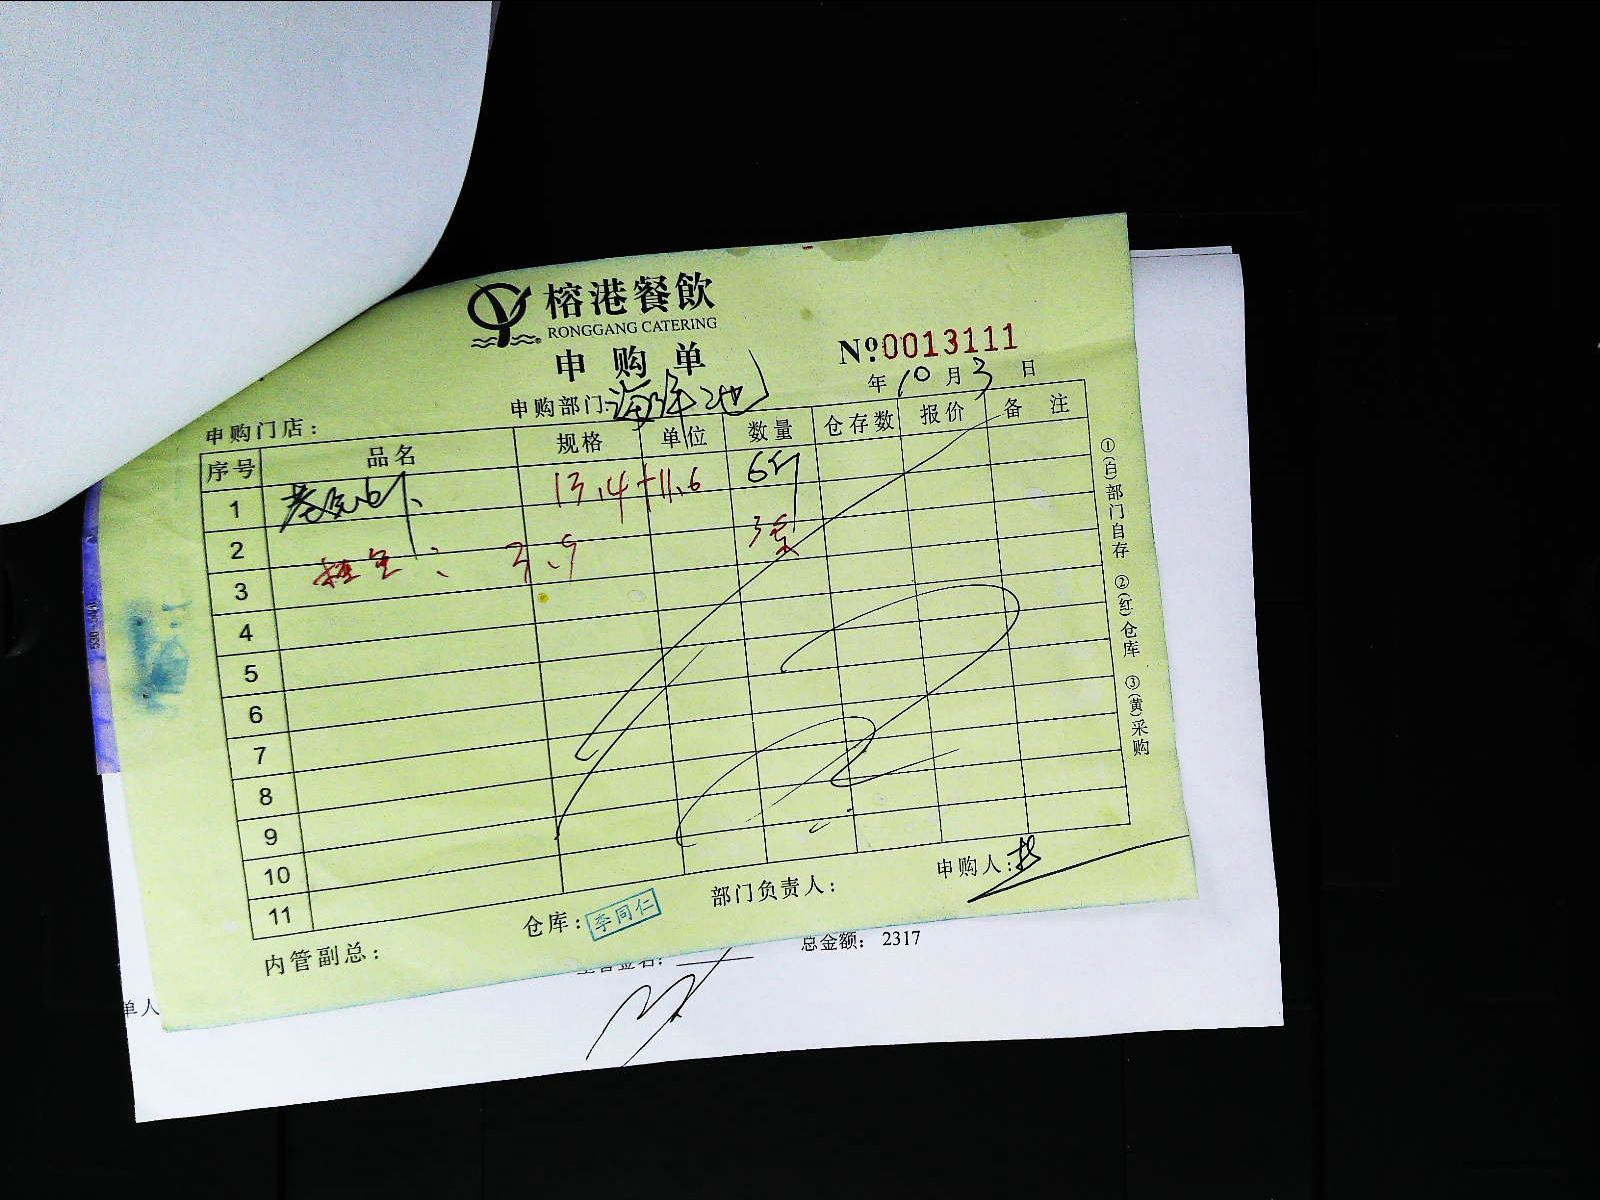 榕港餐飲
RONGGANG CATERING
申购单
№0013111
年10月3日
申购门店：
申购部门：海鲜池
序号 品名 规格 单位 数量 仓存数 报价 备注
1 13.4+11.6 6斤
2
3 桂鱼： 3.9 3条
4
5
6
7
8
9
10
11
①(白)部门自存 ②(红)仓库 ③(黄)采购
内管副总：
仓库：李同仁
部门负责人：
申购人：
总金额： 2317
单人